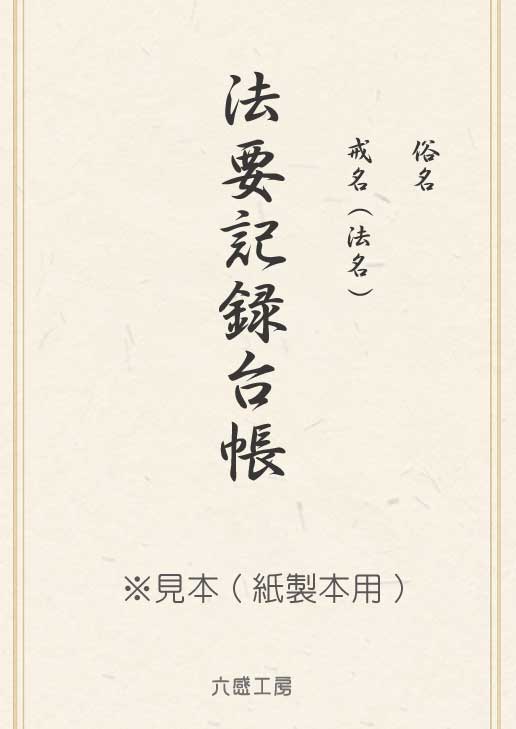 俗名
戒名（法名）
法要記録台帳
※見本（紙製本用）
六感工房